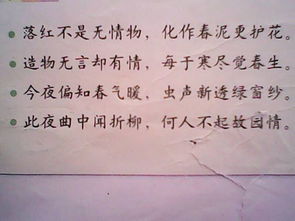 落红不是无情物，化作春泥更护花。
造物无言却有情，每于寒尽觉春生。
今夜偏知春气暖，虫声新透绿窗纱。
此夜曲中闻折柳，何人不起故园情。